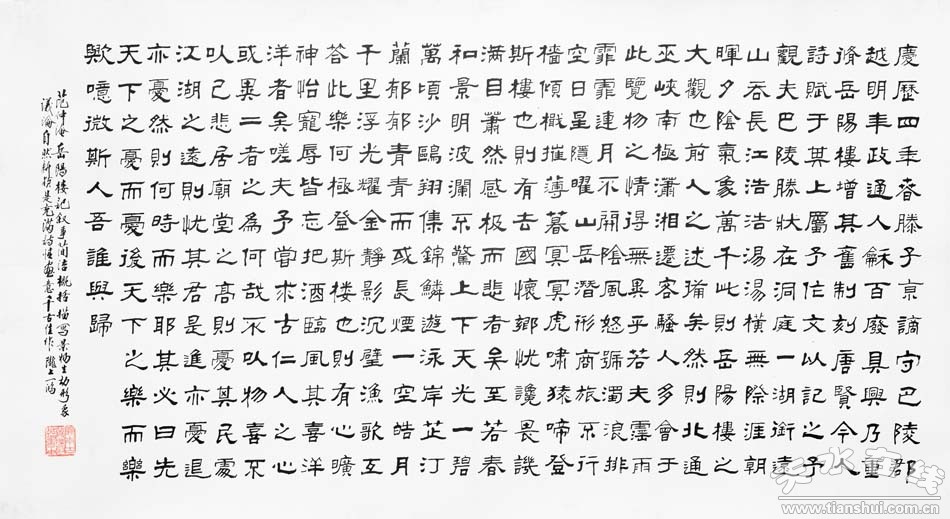 慶歷四年春滕子京謫守巴陵郡
越明年政通人龢百廢具興乃重
脩岳陽樓增其舊制刻唐賢今人
詩賦于其上屬予作文以記之予
觀夫巴陵勝狀在洞庭一湖銜遠
山吞長江浩浩湯湯橫無際涯朝
暉夕陰氣象萬千此則岳陽樓之
大觀也前人之述備矣然則北通
巫峽南極瀟湘遷客騷人多會于
此覽物之情得無異乎若夫霪雨
霏霏連月不開陰風怒號濁浪排
空日星隱曜山岳潛形商旅不行
檣傾楫摧薄暮冥冥虎嘯猿啼登
斯樓也則有去國懷鄉憂讒畏譏
滿目蕭然感極而悲者矣至若春
和景明波瀾不驚上下天光一碧
萬頃沙鷗翔集錦鱗遊泳岸芷汀
蘭郁郁青青而或長煙一空皓月
千里浮光耀金靜影沉璧漁歌互
荅此樂何極登斯樓也則有心曠
神怡寵辱皆忘把酒臨風其喜洋
洋者矣嗟夫予嘗求古仁人之心
或異二者之為何哉不以物喜不
以己悲居廟堂之高則憂其民處
江湖之遠則憂其君是進亦憂退
亦憂然則何時而樂耶其必曰先
天下之憂而憂後天下之樂而樂
歟噫微斯人吾誰與歸
范仲淹岳陽樓記敘事簡潔概括描寫景物生動形象
議論自然新穎是充滿詩情畫意千古佳作隴上
天水在线
www.tianshui.com.cn